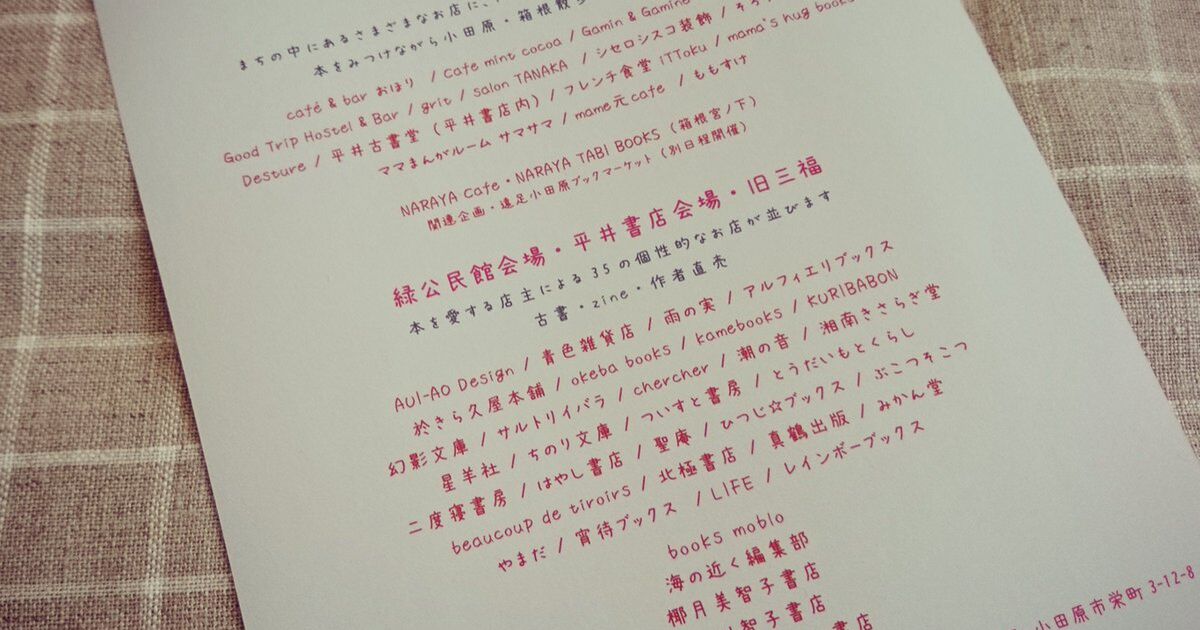 まちの中にあるさまざまなお店に、
本をみつけながら小田原・箱根散歩
café & bar おほり / Cafe mint cocoa / Gamin & Gamine
Good Trip Hostel & Bar / grit / salon TANAKA / シセロシスコ装飾 /
Desture / 平井古書堂（平井書店内）/ フレンチ食堂 iTToku / mama's hug books
ママまんがルーム サマサマ / mame元cafe / ももすけ
NARAYA Cafe・NARAYA TABI BOOKS（箱根宮ノ下）
関連企画・遠足小田原ブックマーケット（別日程開催）
緑公民館会場・平井書店会場・旧三福
本を愛する店主による35の個性的なお店が並びます
古書・zine・作者直売
AUI-AO Design / 青色雑貨店 / 雨の実 / アルフィエリブックス
於きら久屋本舗 / okeba books / kamebooks / KURIBABON
幻影文庫 / サルトリイバラ / chercher / 潮の音 / 湘南きさらぎ堂
星羊社 / ちのり文庫 / ついすと書房 / とうだいもとくらし
二度寝書房 / はやし書店 / 聖庵 / ひつじ☆ブックス / ぶこつそこつ
beaucoup de tiroirs / 北極書店 / 真鶴出版 / みかん堂
やまだ / 宵待ブックス / LIFE / レインボーブックス
books moblo
海の近く編集部
椰月美智子書店
智子書店
書店
小田原市栄町 3-12-8